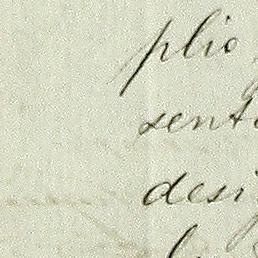 plio
sent
desi